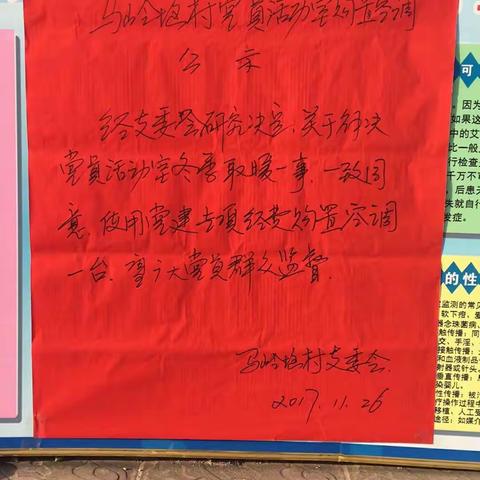 马岭塬村党员活动室购置空调
公示
经支委会研究决定,关于解决
党员活动室冬季取暖一事,一致同
意,使用党建专项经费购置空调
一台,望广大党员群众监督.
马岭塬村支委会.
2017.11.26
可
因为
如果这
中的艾
比一般
行检查
千万不可
后悬
失就自行
发症。
的性
监测的常见
软下疳,
念珠菌病、
触传播:同
交、手淫、
接触传播:
和血液制品
射器或针头、
垂直传播:
染婴儿。
性传播:被污
疗操作过程中
移植、人工受
途径:如媒介